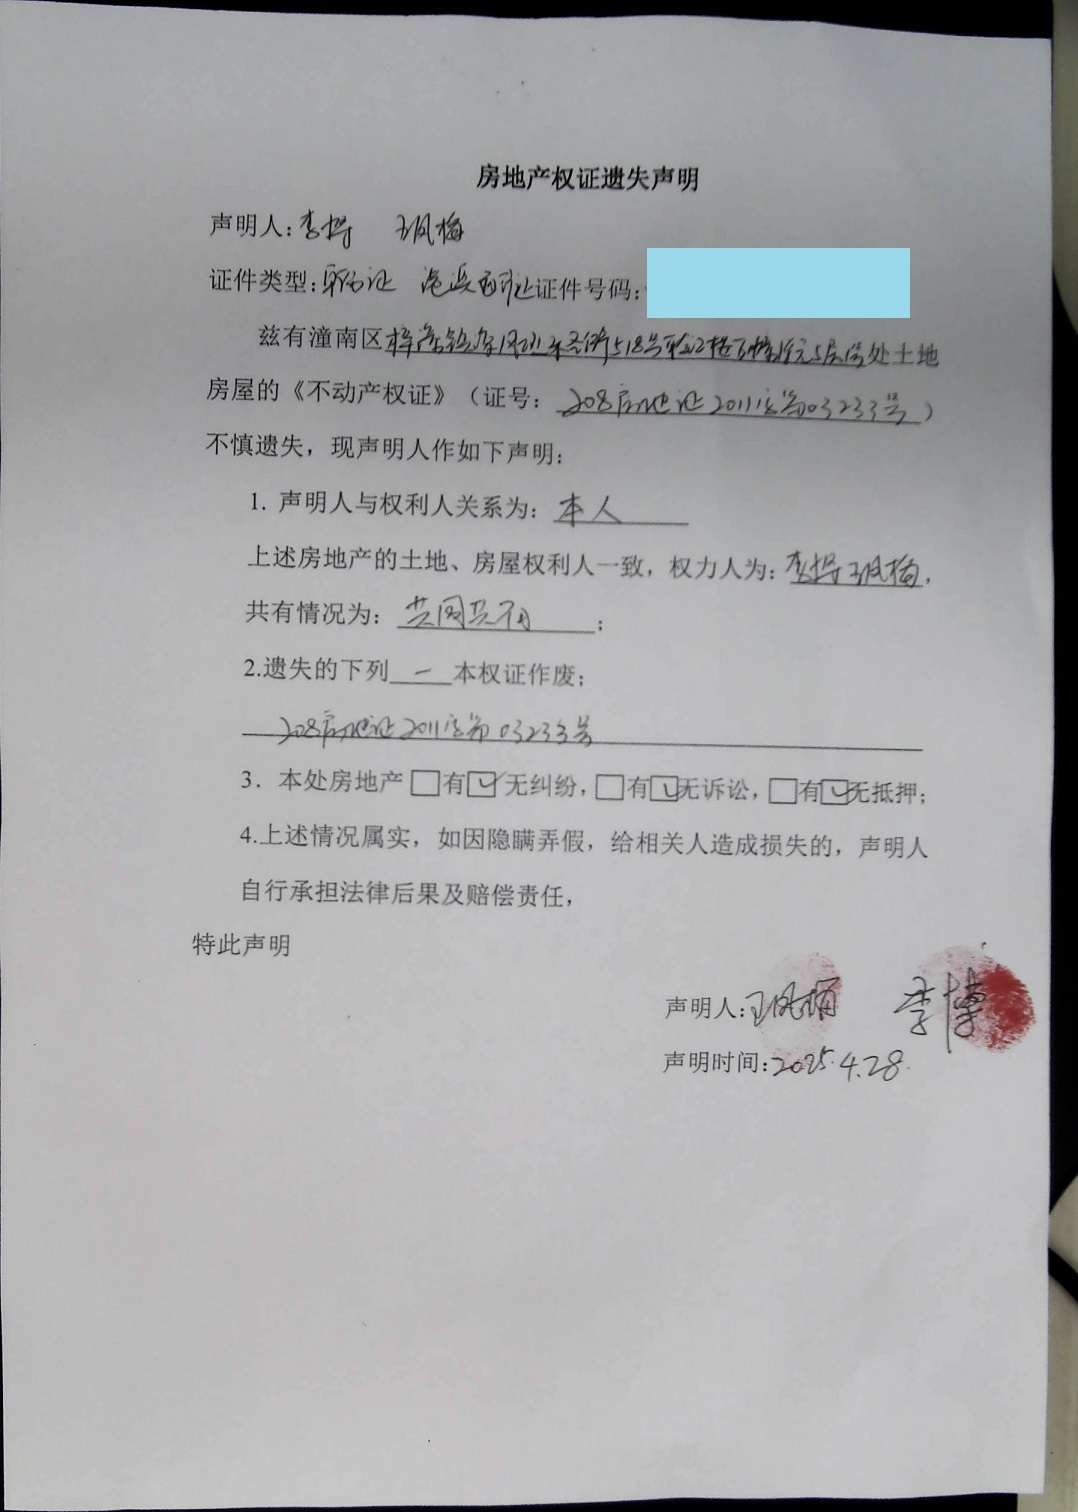 房地产权证遗失声明
声明人:李博 王凤梅
证件类型:证件号码:
兹有潼南区梓潼518号5层处土地
房屋的《不动产权证》（证号: 208房地证2011字第03233号）
不慎遗失，现声明人作如下声明:
1. 声明人与权利人关系为: 本人
上述房地产的土地、房屋权利人一致，权力人为: 李博 王凤梅，
共有情况为: 共同共有；
2.遗失的下列一本权证作废；
208房地证2011字第03233号
3. 本处房地产□有☑无纠纷，□有☑无诉讼，□有☑无抵押；
4.上述情况属实，如因隐瞒弄假，给相关人造成损失的，声明人
自行承担法律后果及赔偿责任，
特此声明
声明人:王凤梅 李博
声明时间:2025.4.28.